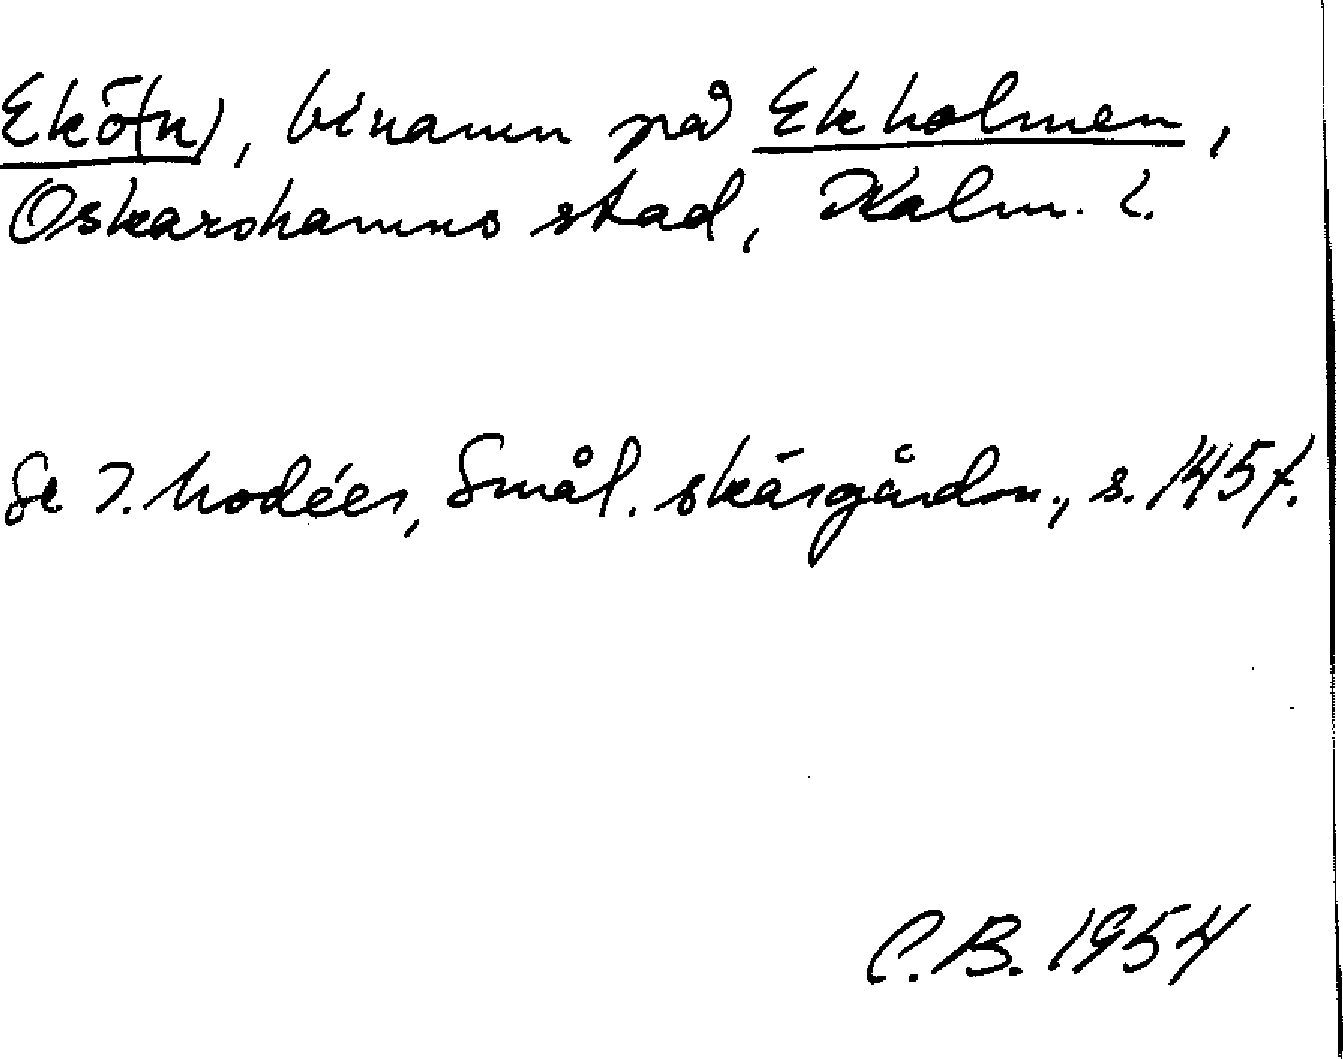 Ekö(n), binamn på Ekholmen,
Oskarshamns stad, Kalm. l.
Se I. Modéer, Smål. skärgårdsn., s. 145 f.
C.B. 1954